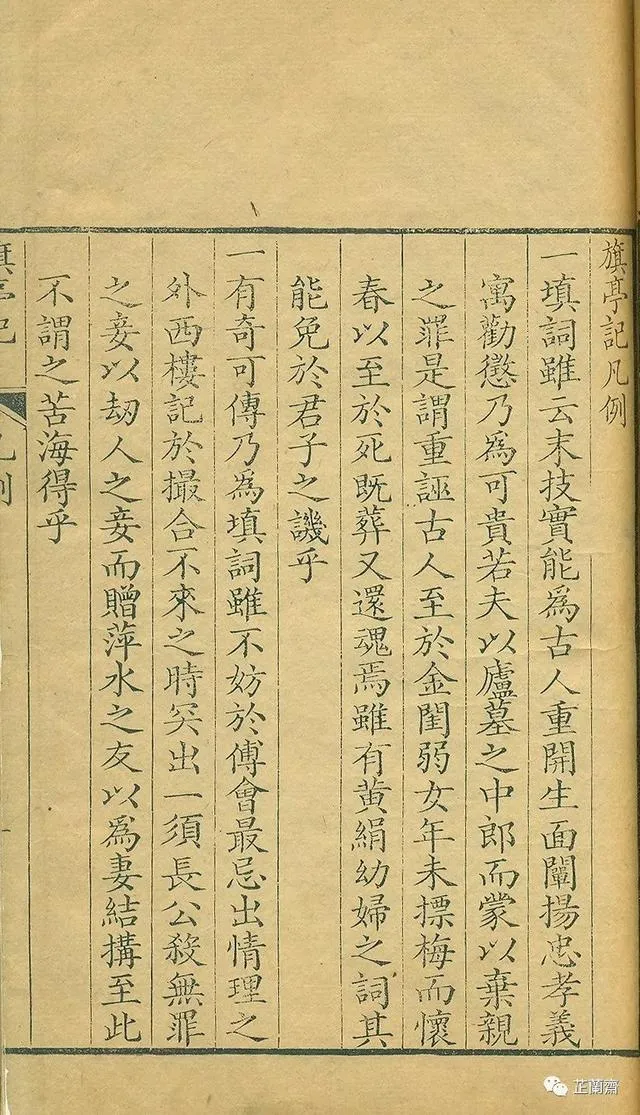 旗亭記凡例
一填詞雖云末技實能為古人重開生面闡揚忠孝義
寓勸懲乃為可貴若夫以廬墓之中郎而蒙以棄親
之罪是謂重誣古人至於金閨弱女年未摽梅而懷
春以至於死既葬又還魂焉雖有黃絹幼婦之詞其
能免於君子之譏乎
一有奇可傳乃為填詞雖不妨於傅會最忌出情理之
外西樓記於撮合不來之時突出一須長公殺無罪
之妾以劫人之妾而贈萍水之友以為妻結搆至此
不謂之苦海得乎
旗亭記
凡例
一
芷蘭齋